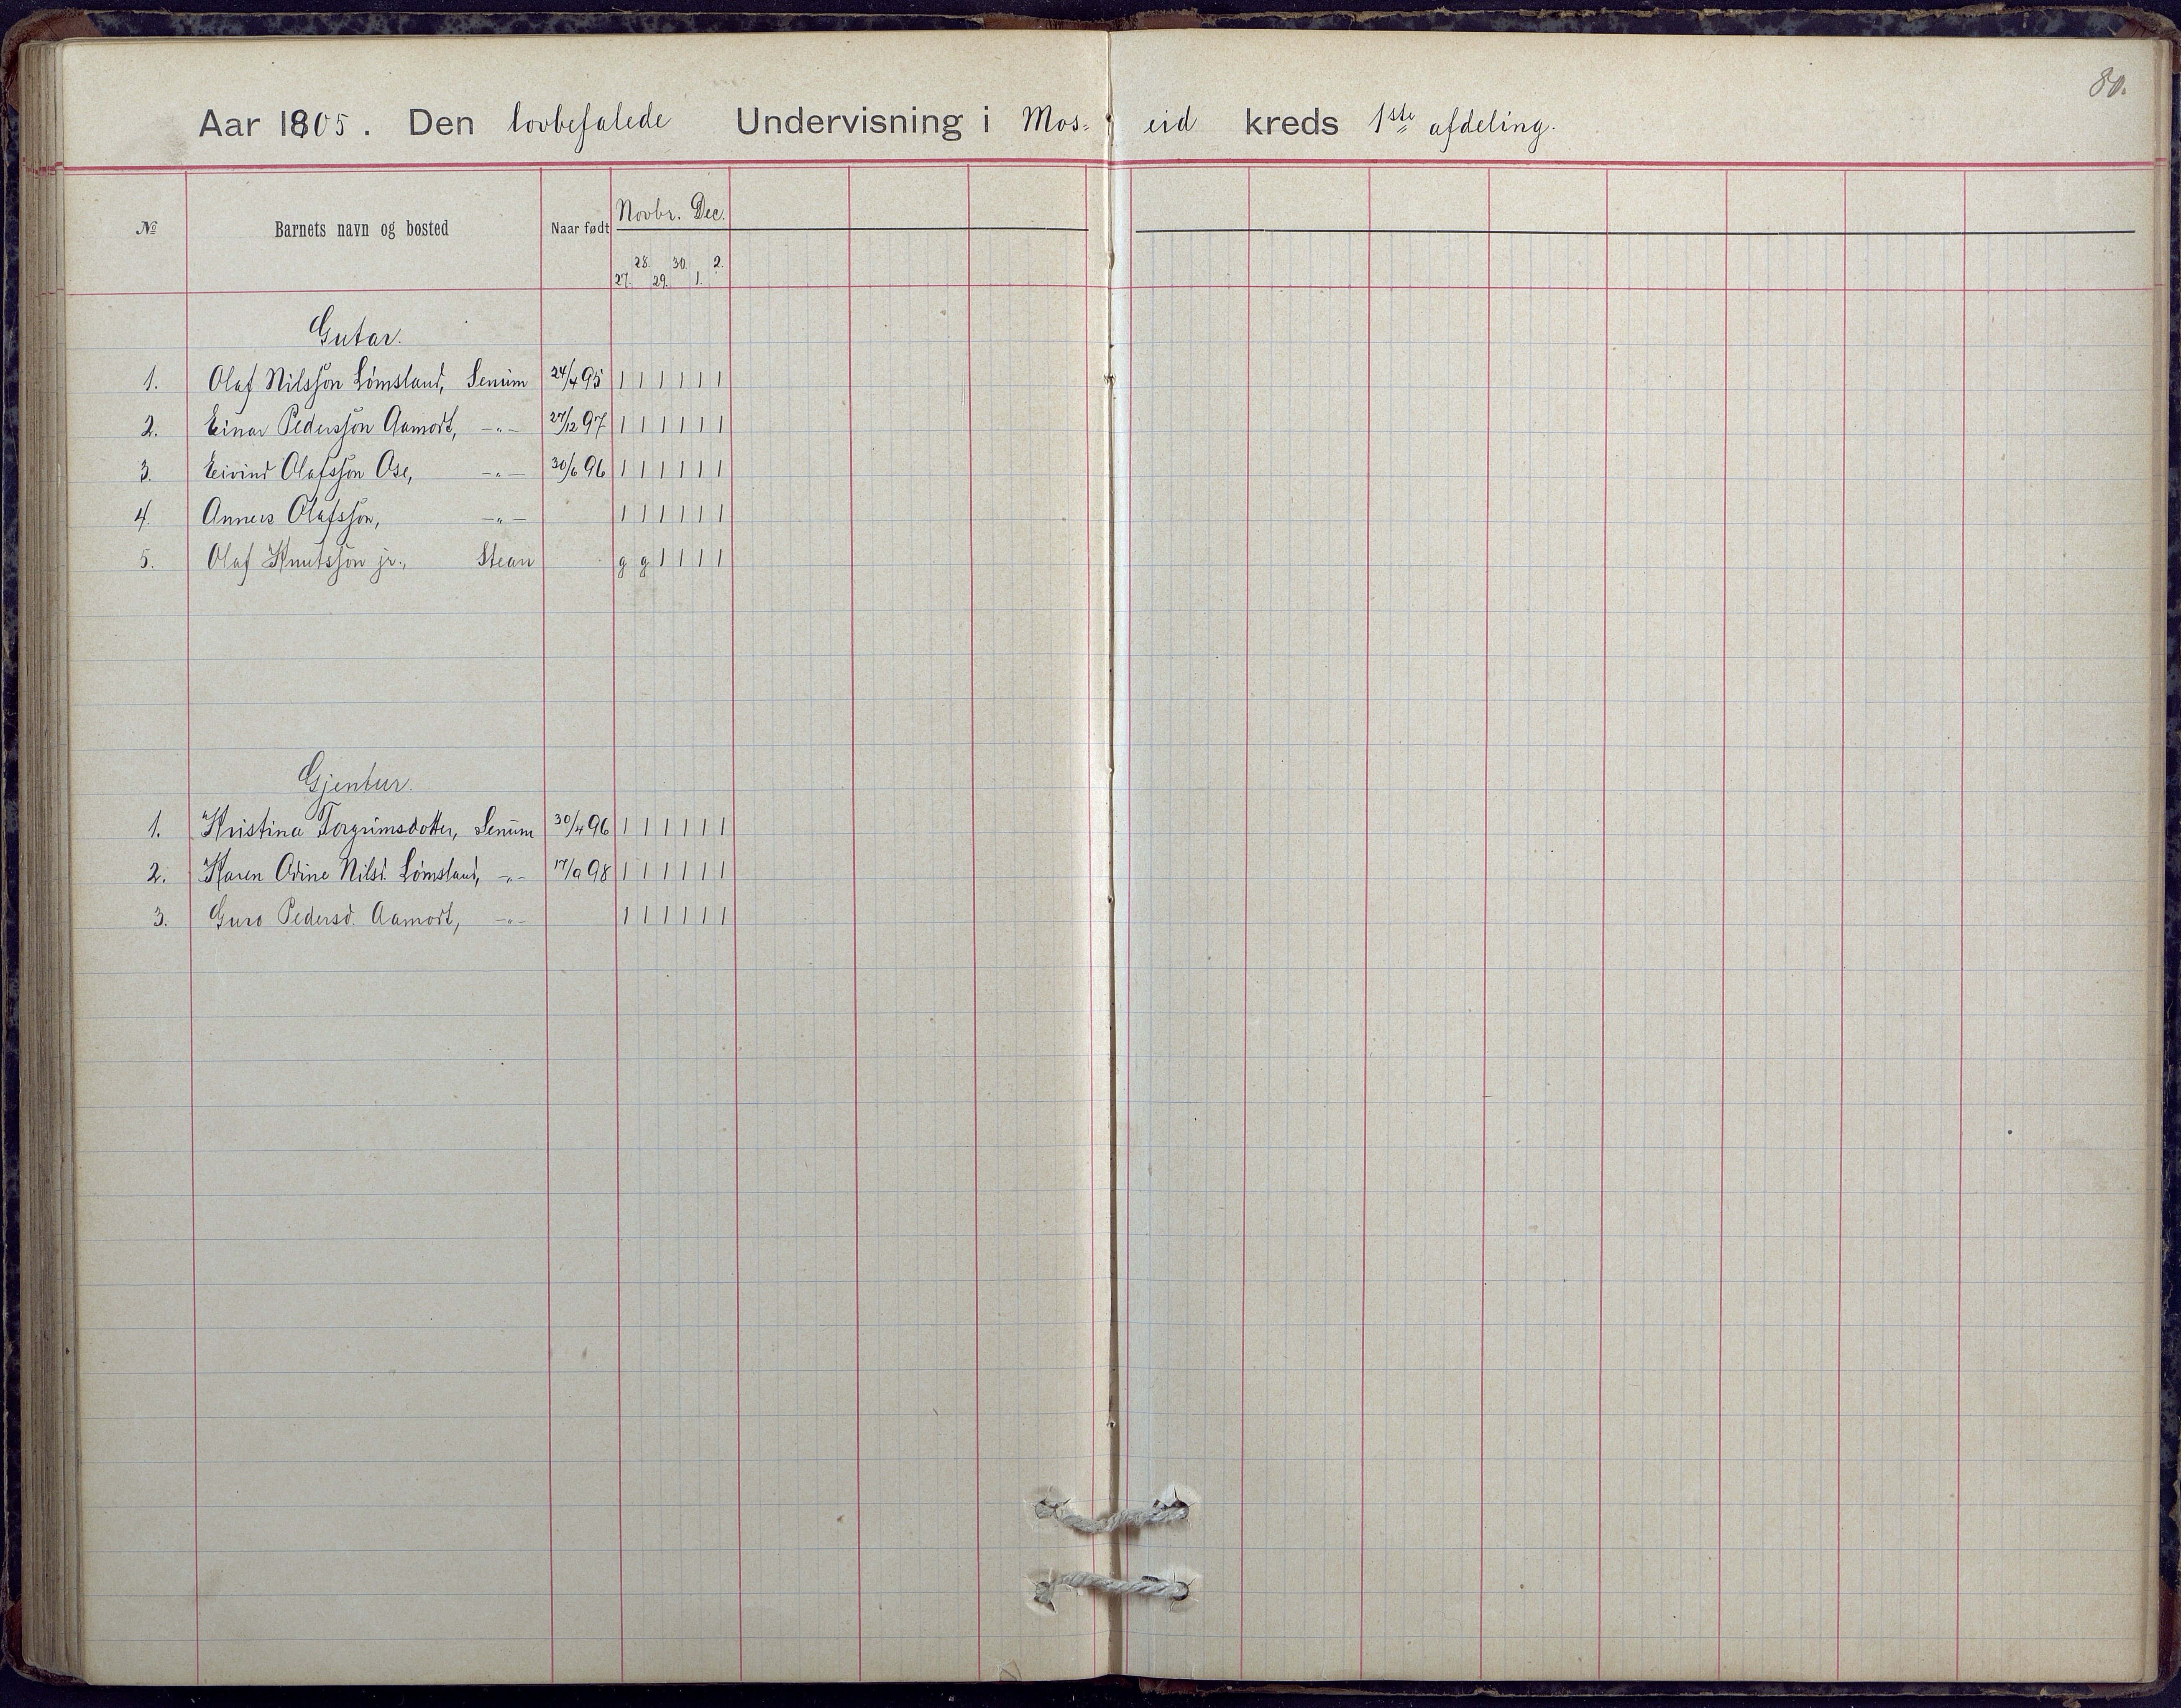 80.
Aar 1905. Den lovbefalede Undervisning i Mos= eid kreds 1ste afdeling.
№ Barnets navn og bosted Naar født Novbr. Dec.
27. 28. 29. 30. 1. 2.
Gutar.
1. Olaf Nilsson Lømsland, Senum 24/4 95 1 1 1 1 1 1
2. Einar Pedersson Aamodt, -"- 27/12 97 1 1 1 1 1 1
3. Eivind Olafsson Ose, -"- 30/6 96 1 1 1 1 1 1
4. Anners Olafsson, -"- 1 1 1 1 1 1
5. Olaf Knutsson jr., Stean g g 1 1 1 1
Gjentur.
1. Kristina Torgrimsdotter, Senum 30/4 96 1 1 1 1 1 1
2. Karen Odine Nilsd. Lømsland, -"- 17/9 98 1 1 1 1 1 1
3. Guro Pedersd. Aamodt, -"- 1 1 1 1 1 1